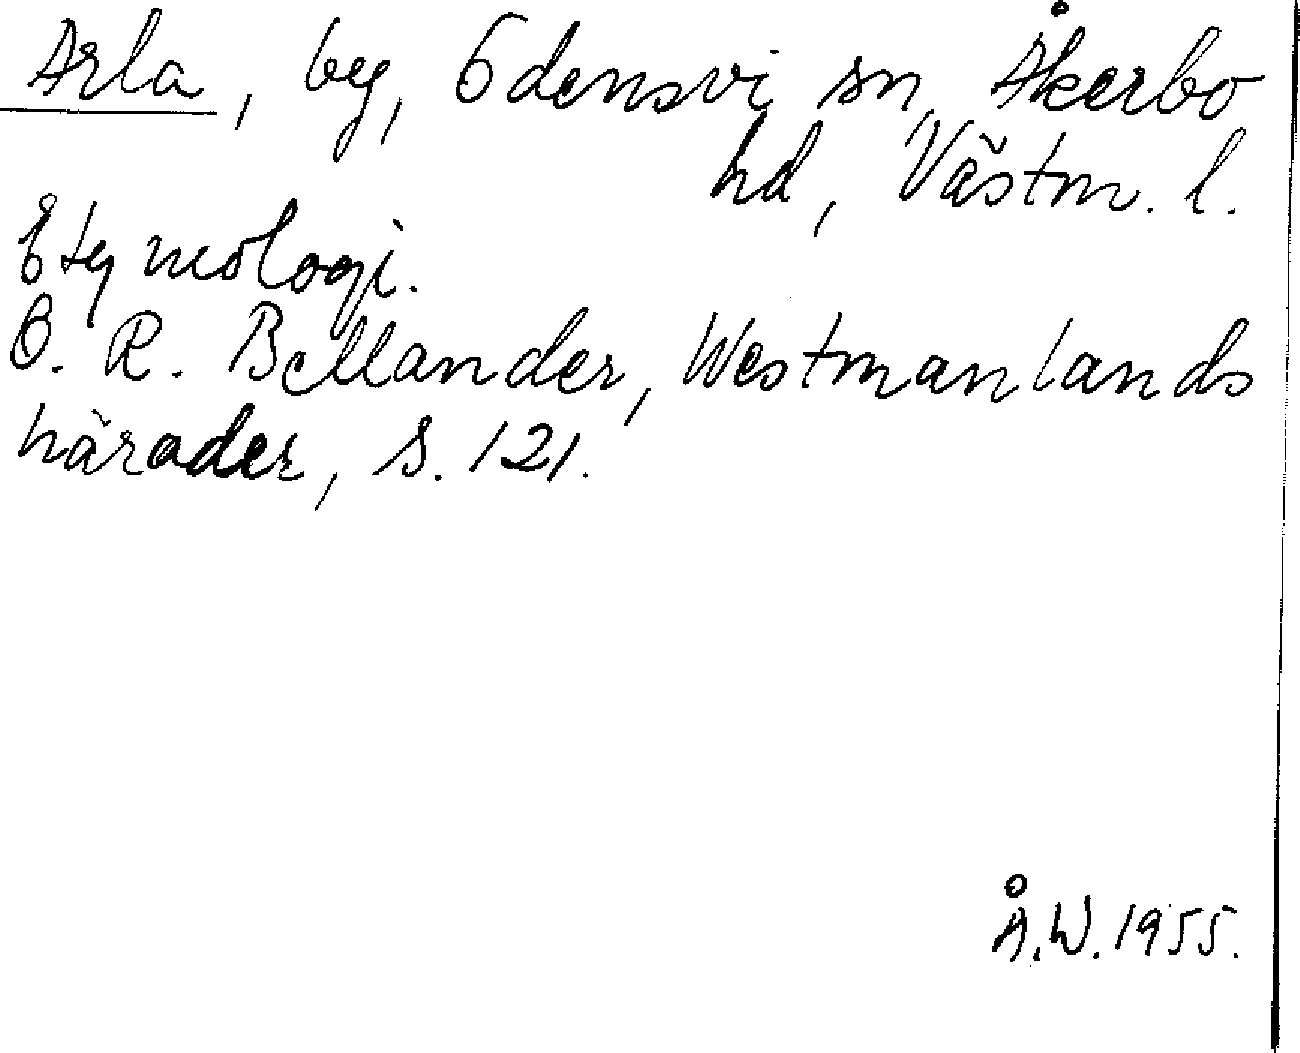 Arla, by, Odensvi sn, Åkerbo
hd, Västm. l.
Etymologi.
O. R. Bellander, Westmanlands
härader, s. 121.
Å.W. 1955.